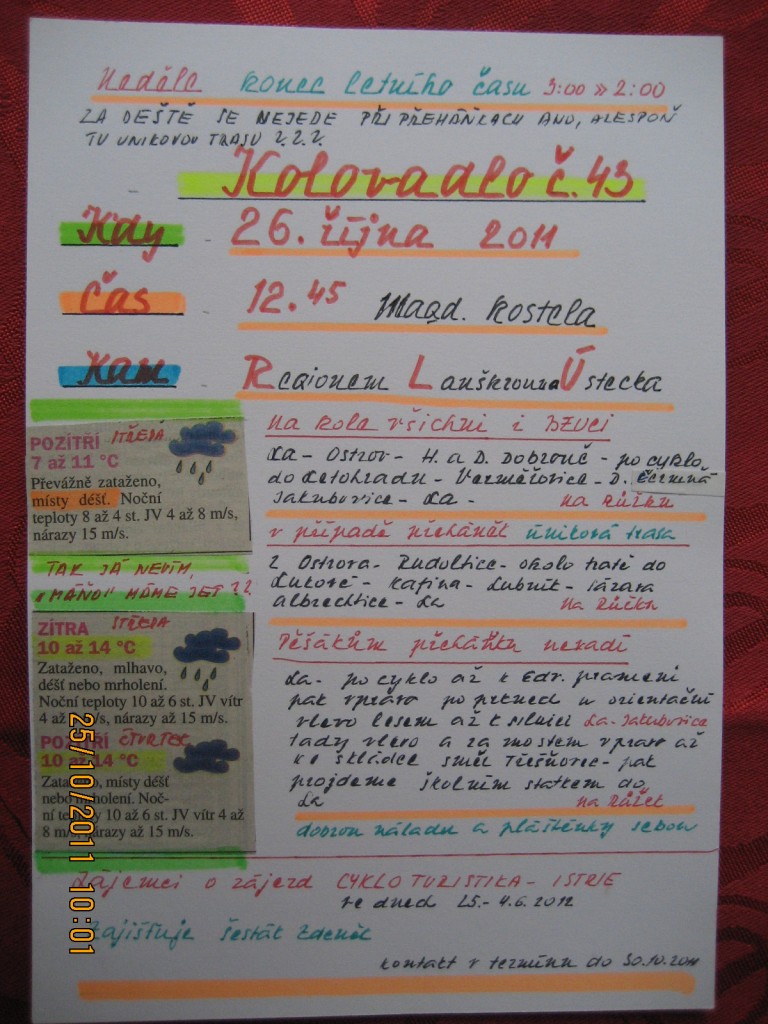 Neděle konec letního času 3:00 » 2:00
ZA DEŠTĚ SE NEJEDE PŘI PŘEHÁŇKACH ANO, ALESPOŇ
TU UNIKOVOU TRASU ?.?.?.
Kolovadlo č. 43
Kdy - 26. října 2011
Čas - 12.45 Magd. kostela
Kam - Regionem Lanškrouna Ústecka
Na kole všichni i
La - Ostrov - H. a D. Dobrouč - po cyklo
do Letohradu - Verměřovice - D. Čermná
Jakubovice - La - na Růžku
v případě přeháněk úniková trasa
z Ostrova - Rudoltice - okolo tratě do
Lukové - Lubník - Sázava
albrechtice - La na Růžku
Pěšákům přeháňka nevadí
La - po cyklo až k Edr. prameni
pak vpravo po v orientační
vlevo lesem až k silnici La - Jakubovice
tady vlevo a za mostem vpravo až
ke skládce směr Třešňovec - pak
projdeme školním statkem do
La na Růžek
dobrou náladu a pláštěnky sebou
POZÍTŘÍ STŘEDA
7 až 11 °C
Převážně zataženo,
místy déšť. Noční
teploty 8 až 4 st. JV 4 až 8 m/s,
nárazy 15 m/s.
TAK JÁ NEVÍM,
"MÁŇO" MÁME JET ??
ZÍTRA STŘEDA
10 až 14 °C
Zataženo, mlhavo,
déšť nebo mrholení.
Noční teploty 10 až 6 st. JV vítr
4 až 8 m/s, nárazy až 15 m/s.
POZÍTŘÍ ČTVRTEK
10 až 14 °C
Zataženo, místy déšť
nebo mrholení. Noč-
ní teploty 10 až 6 st. JV vítr 4 až
8 m/s, nárazy až 15 m/s.
Zájemci o zájezd CYKLOTURISTIKA - ISTRIE
ve dnech 25.- 4.6.2012
Zajišťuje Šesták Zdeněk
kontakt v termínu do 30.10.2011
25/10/2011 10:01